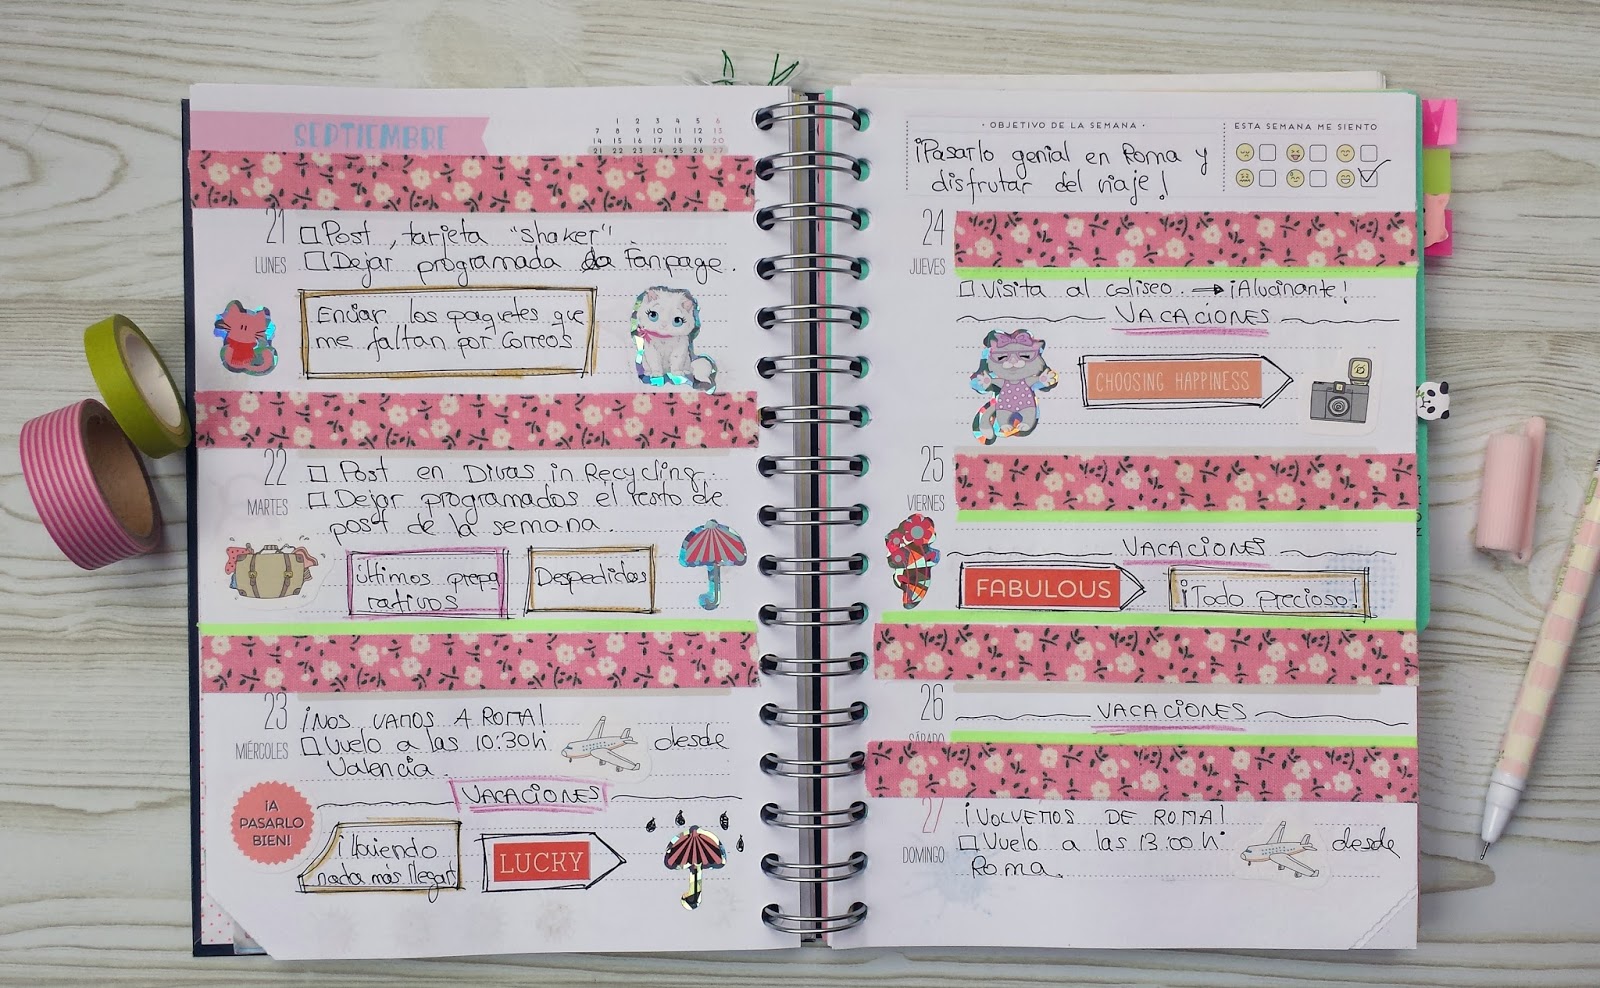 SEPTIEMBRE
1 2 3 4 5 6
7 8 9 10 11 12 13
14 15 16 17 18 19 20
21 22 23 24 25 26 27
21
LUNES
Post, tarjeta "shaker"
Dejar programada la Fanpage.
Enviar los paquetes que
me faltan por correos
22
MARTES
Post en Divas in Recycling.
Dejar programados el resto de
post de la semana.
Últimos prepa
rativos
Despedidas
23
MIÉRCOLES
¡NOS VAMOS A ROMA!
Vuelo a las 10:30h desde
Valencia.
VACACIONES
¡A
PASARLO
BIEN!
¡Lloviendo
nada más llegar!
LUCKY
· OBJETIVO DE LA SEMANA ·
¡Pasarlo genial en Roma y
disfrutar del viaje!
ESTA SEMANA ME SIENTO
24
JUEVES
Visita al coliseo. → ¡Alucinante!
VACACIONES
CHOOSING HAPPINESS
25
VIERNES
VACACIONES
FABULOUS
¡Todo precioso!
26
SÁBADO
VACACIONES
27
DOMINGO
¡VOLVEMOS DE ROMA!
Vuelo a las 13:00h desde
Roma.